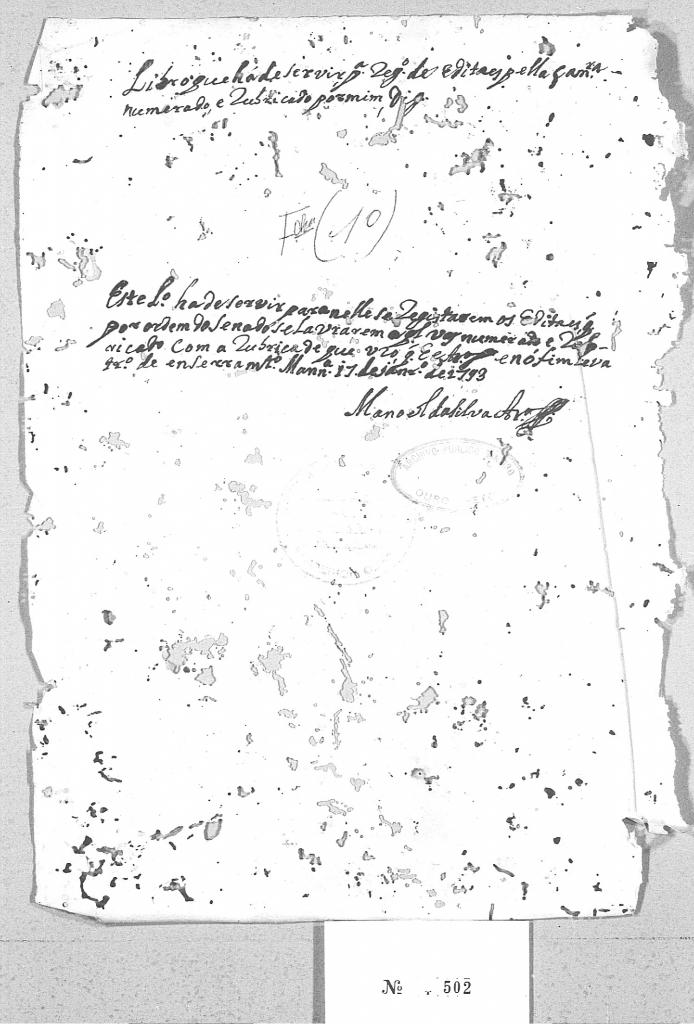 Libro que há de servir p.ª Reg.º de Editaes pella Cam.ra
numerado, e Rubricado por mim,
(1º)
Este L.º ha de servir para nelle se Registarem os Editaes q̃
por ordem do Senado se Lavrarem o qĺ vay numerado e Rub-
ricado Com a Rubrica de que uzo q̃ he e no fim Leva
tr.º de enserram.to Mann.ª 17 de Janr.º de 1793
Manoel da Silva
ARCHIVO PUBLICO MINEIRO
OURO PRETO
Nº 502